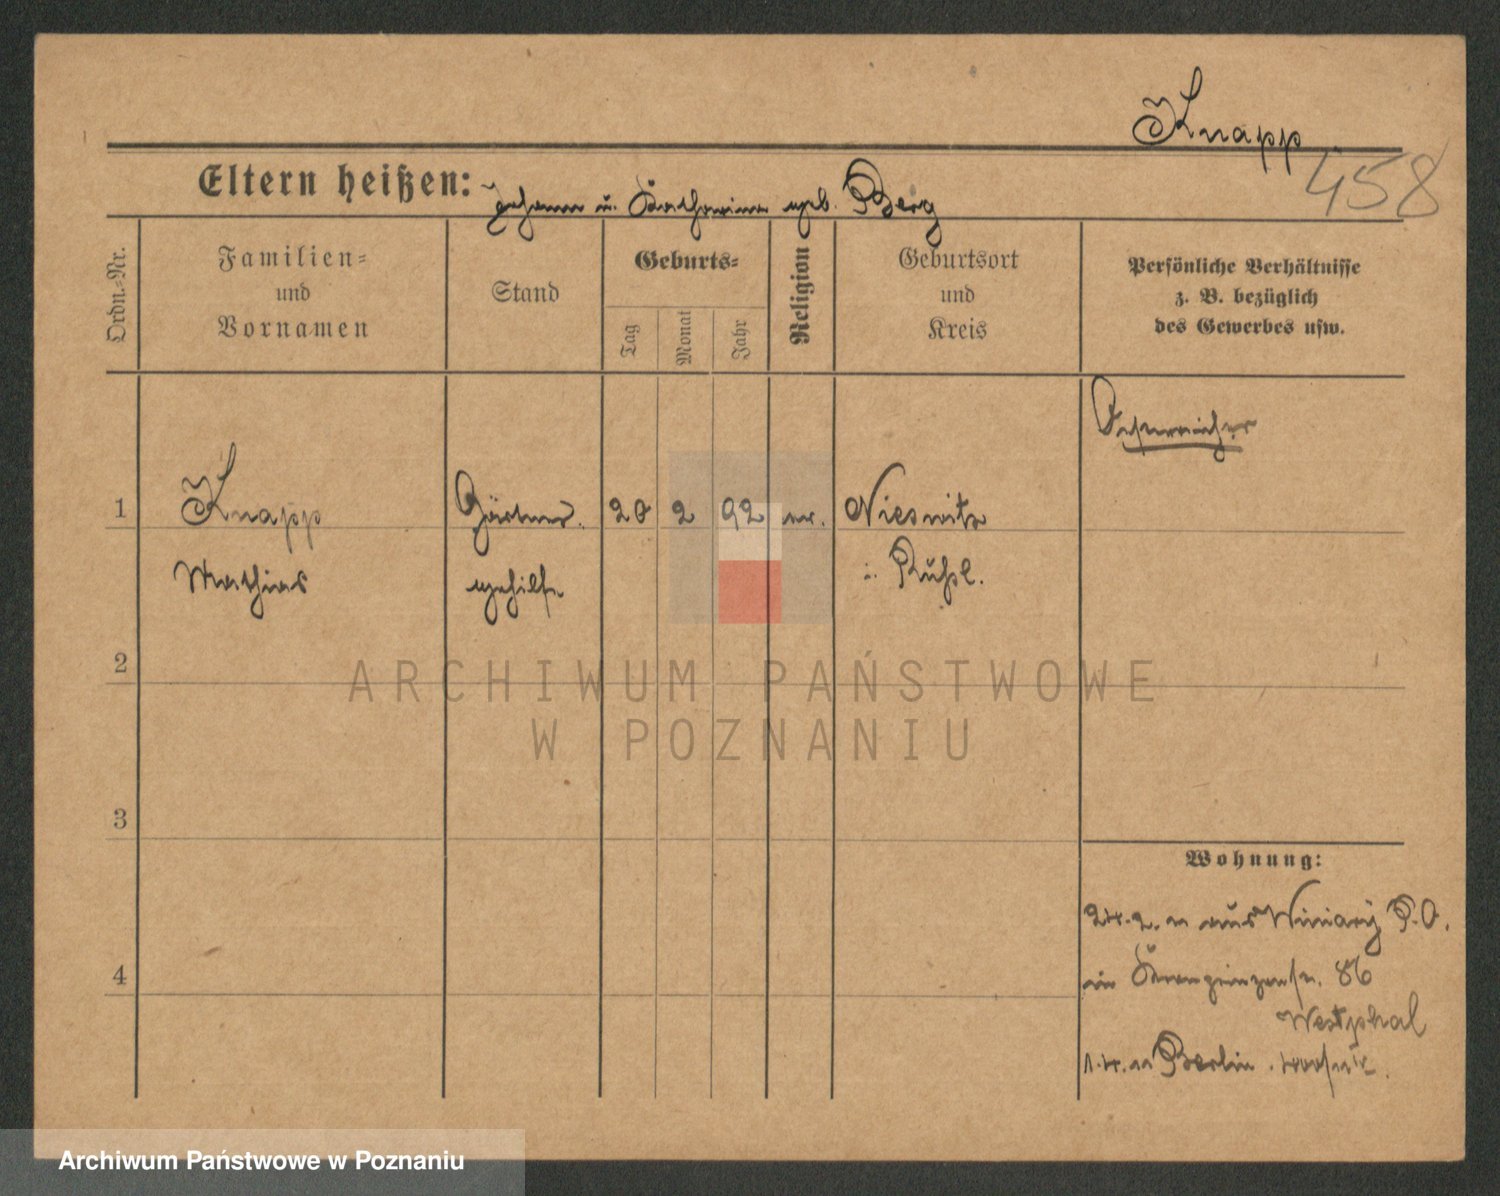 Knapp
458
Eltern heißen: Johann u. Katharina geb. Berg
Ordn.=Nr.
Familien=
und
Vornamen
Stand
Geburts=
Tag
Monat
Jahr
Religion
Geburtsort
und
Kreis
Persönliche Verhältnisse
z. B. bezüglich
des Gewerbes usw.
Österreicher
1
Knapp
Gärtner
20 2 92
Mathias
gehilfe
i. Rußl.
2
ARCHIWUM PAŃSTWOWE
W POZNANIU
3
Wohnung:
aus Winiary P.O.
4
Kronprinzenstr. 86
Westphal
Berlin
Archiwum Państwowe w Poznaniu